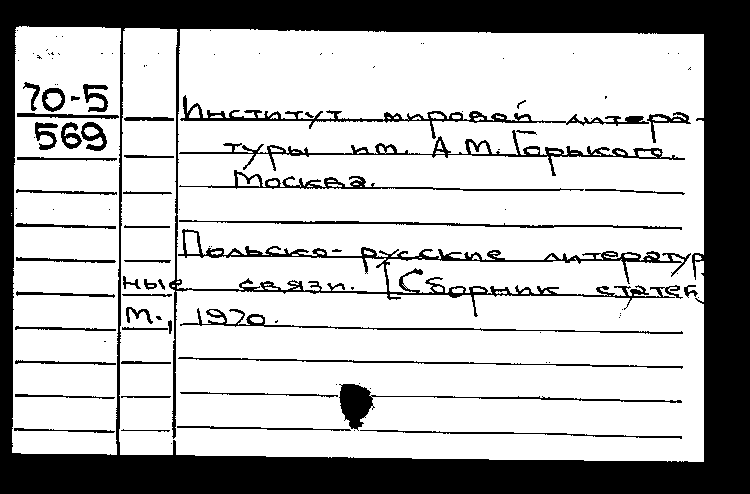 70-5
569
Институт мировой литера-
туры им. А.М. Горького.
Москва.
Польско-русские литератур
ные связи. [Сборник статей
М., 1970.